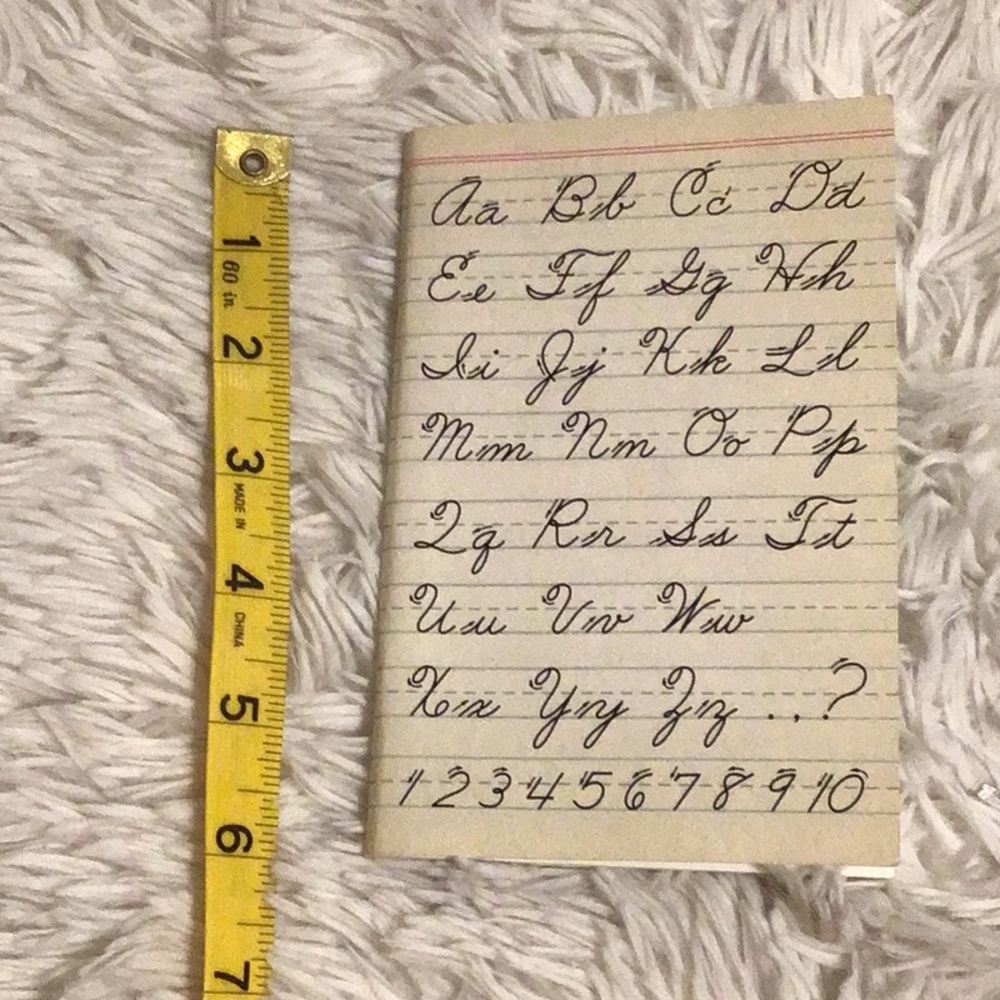 1
60 in
2
3
MADE IN
4
CHINA
5
6
7
Aa Bb Cc Dd
Ee Ff Gg Hh
Ii Jj Kk Ll
Mm Nn Oo Pp
Qq Rr Ss Tt
Uu Vv Ww
Xx Yy Zz . , ?
1 2 3 4 5 6 7 8 9 10